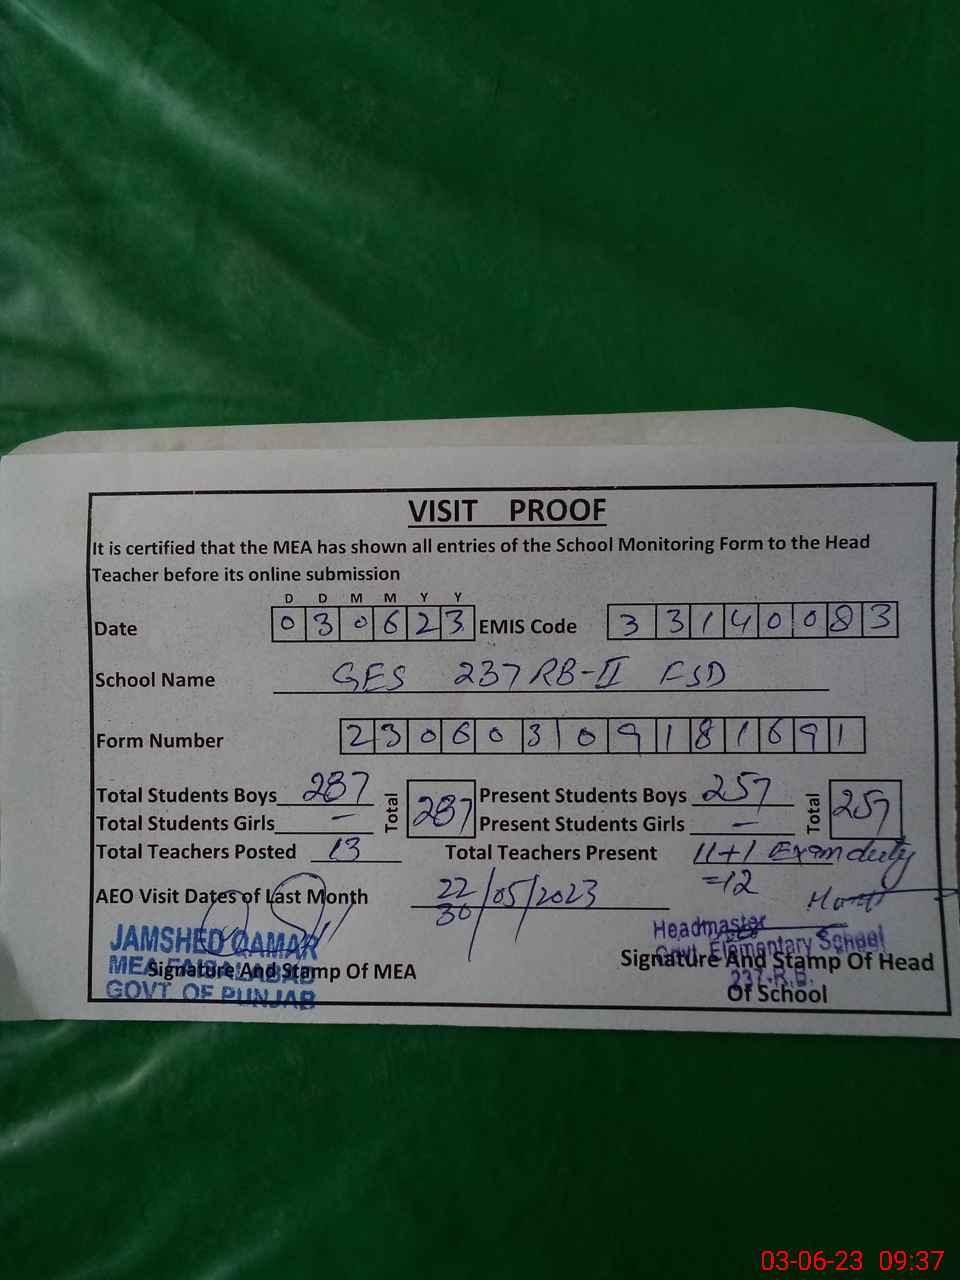 VISIT PROOF
It is certified that the MEA has shown all entries of the School Monitoring Form to the Head
Teacher before its online submission
D D M M Y Y
Date 0 3 0 6 2 3 EMIS Code 3 3 1 4 0 0 8 3
School Name GES 237 RB-II FSD
Form Number 2 3 0 6 0 3 1 0 9 1 8 1 6 9 1
Total Students Boys 287 Total 287 Present Students Boys 257 Total 257
Total Students Girls - Present Students Girls -
Total Teachers Posted 13 Total Teachers Present 11+1 Exam duty
=12
AEO Visit Dates of Last Month 22/30/05/2023
JAMSHED QAMAR
MEA FAISALABAD
GOVT OF PUNJAB
Signature And Stamp Of MEA
Headmaster
Govt. Elementary School
237-R.B.
Signature And Stamp Of Head
Of School
03-06-23 09:37